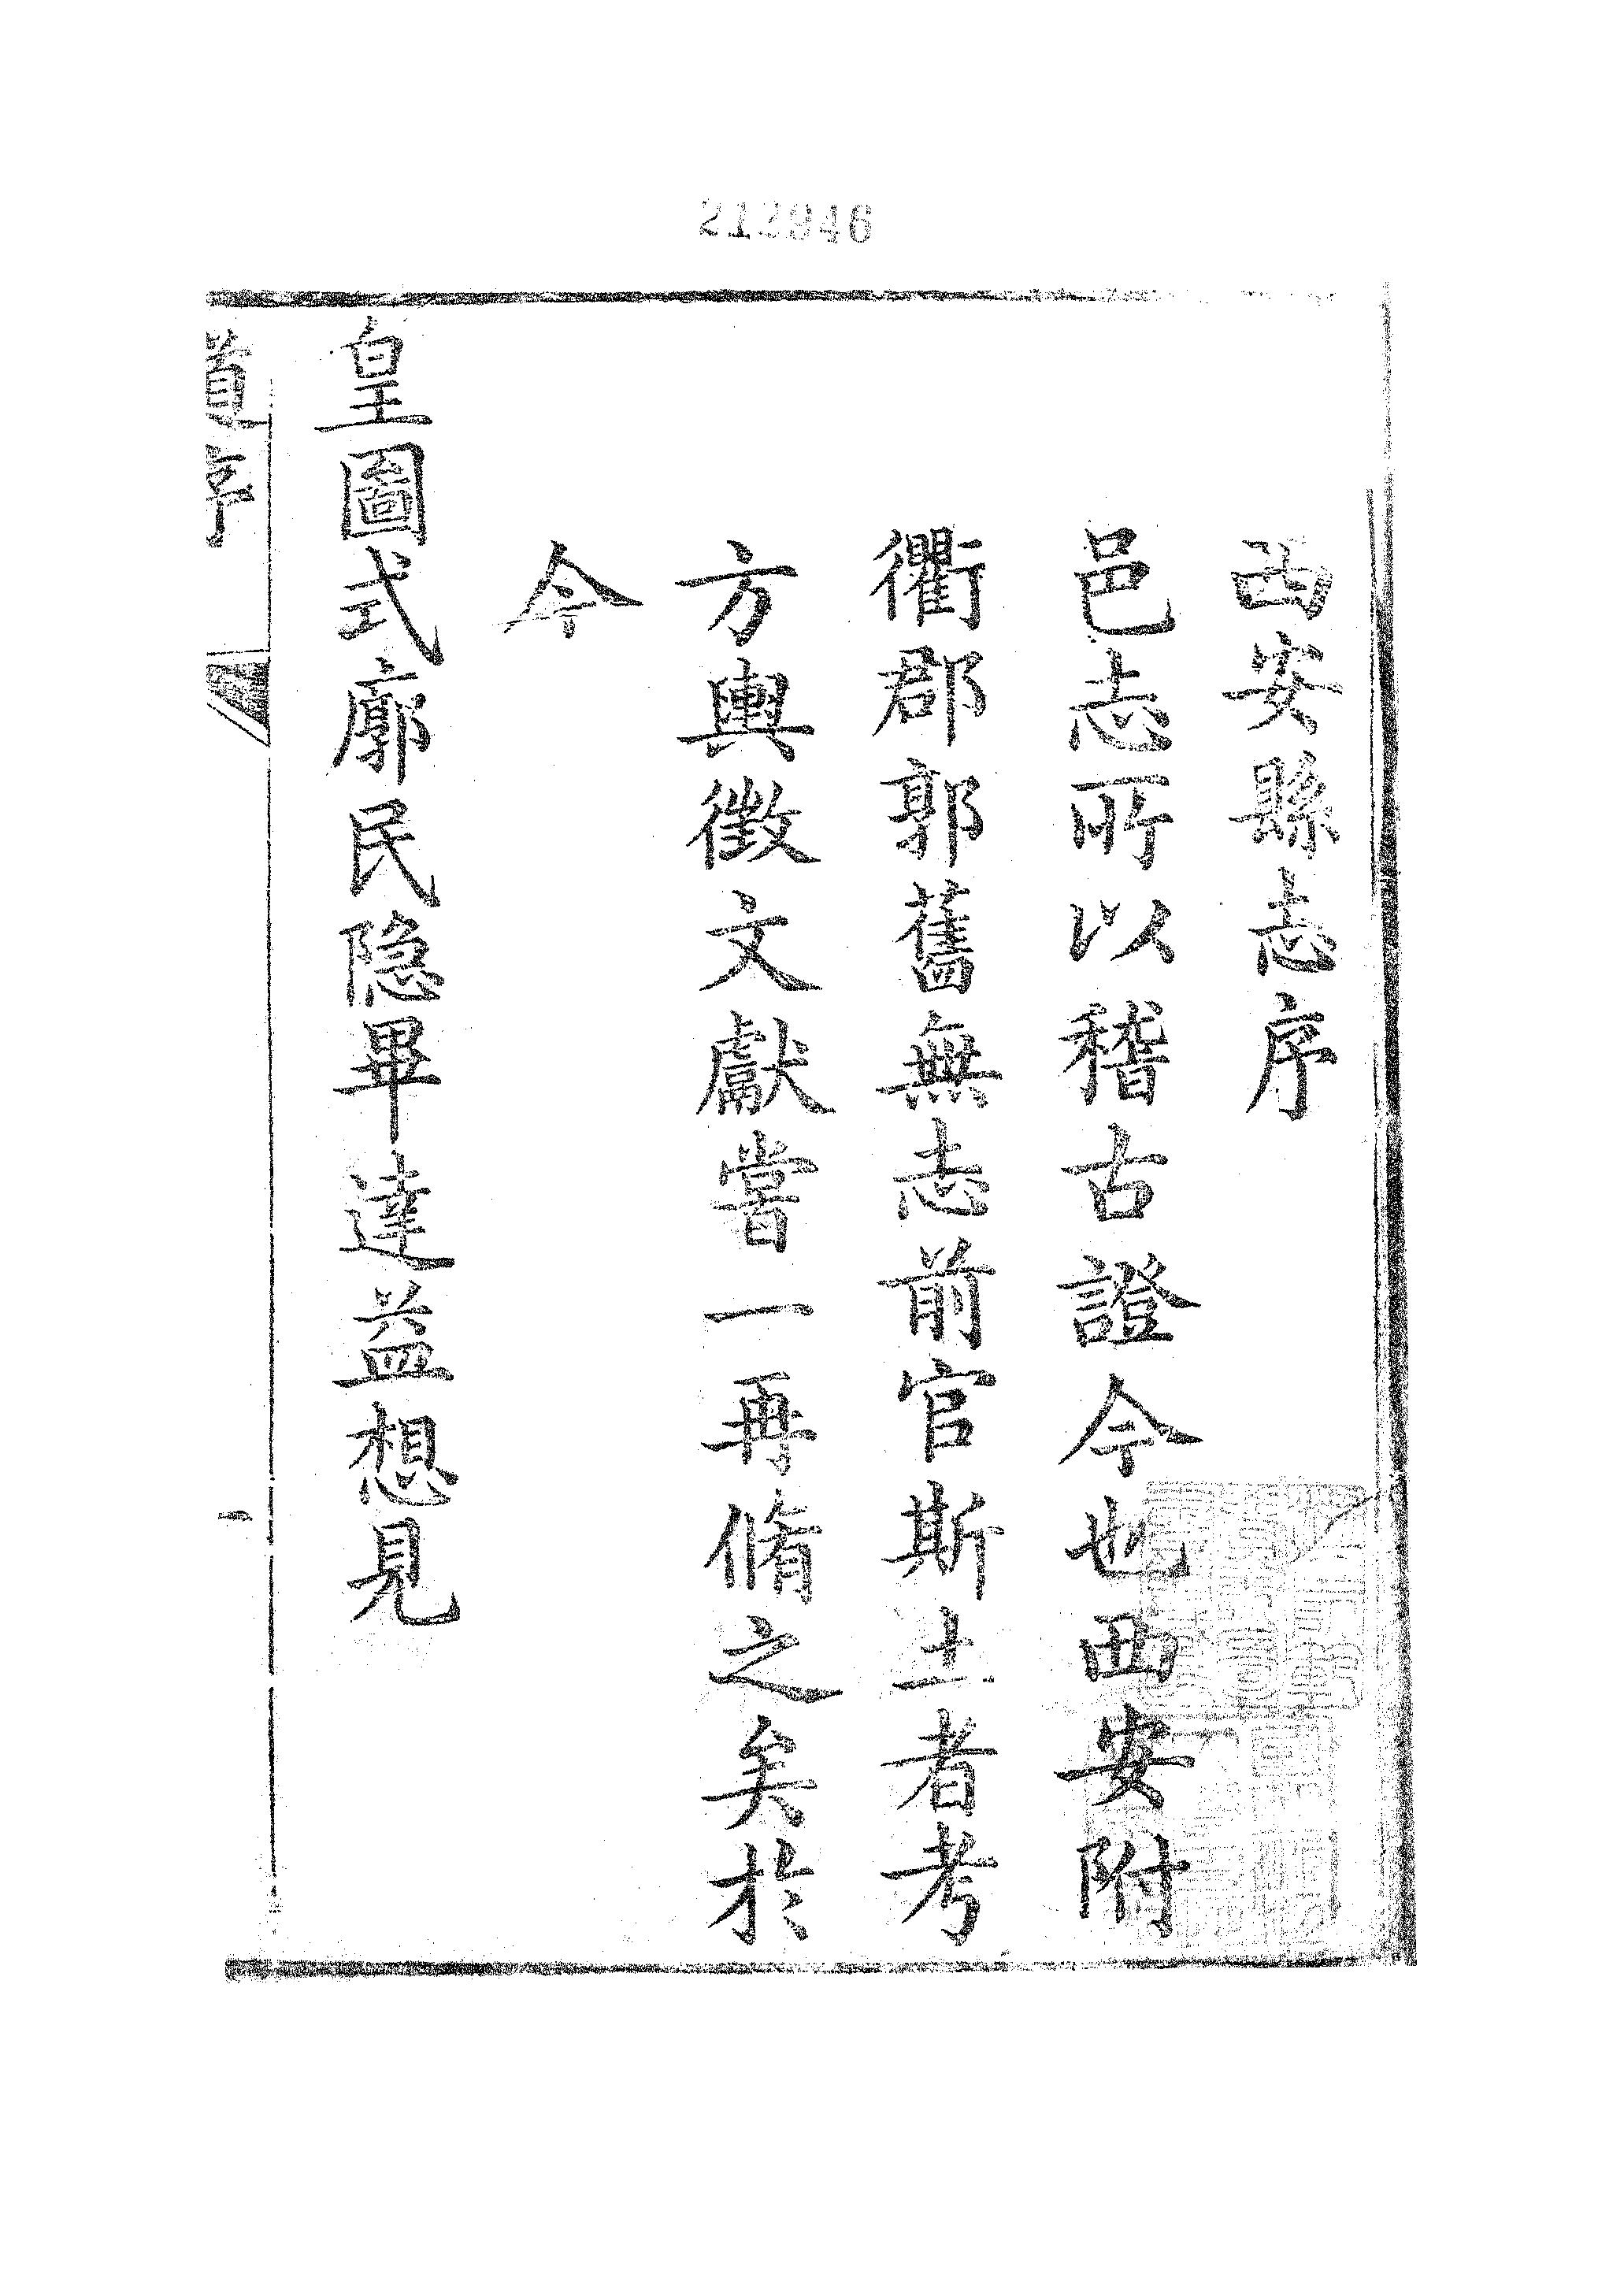 212946
西安縣志序
邑志所以稽古證今也西安附
衢郡郭舊無志前官斯土者考
方輿徵文獻嘗一再脩之矣於
今
皇圖式廓民隐畢達益想見
道序
一